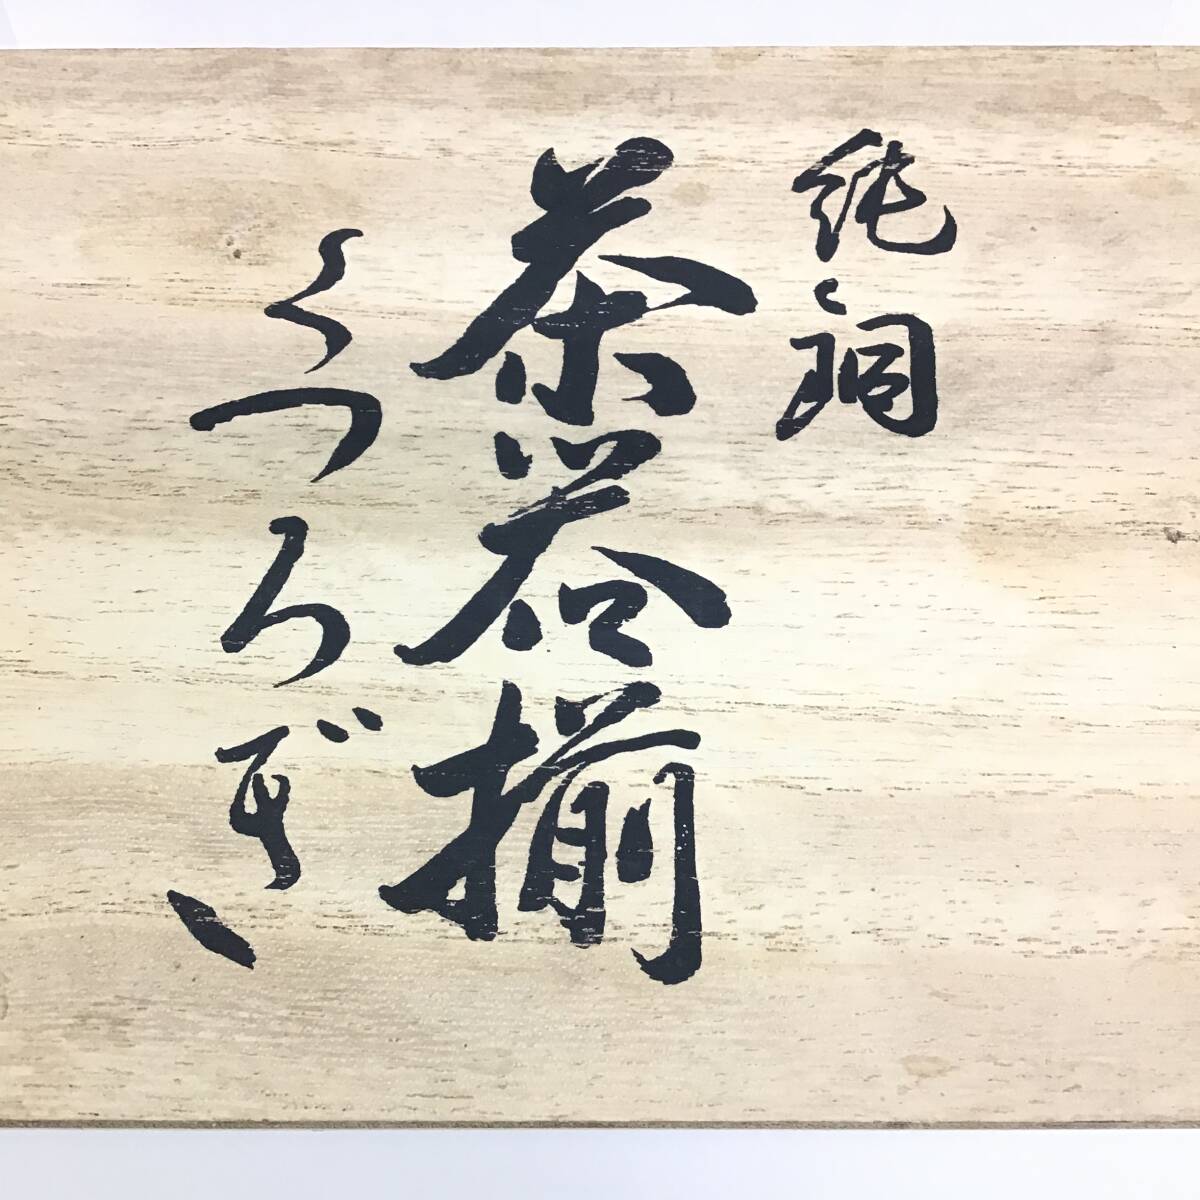 純銅
茶器揃
くつろぎ